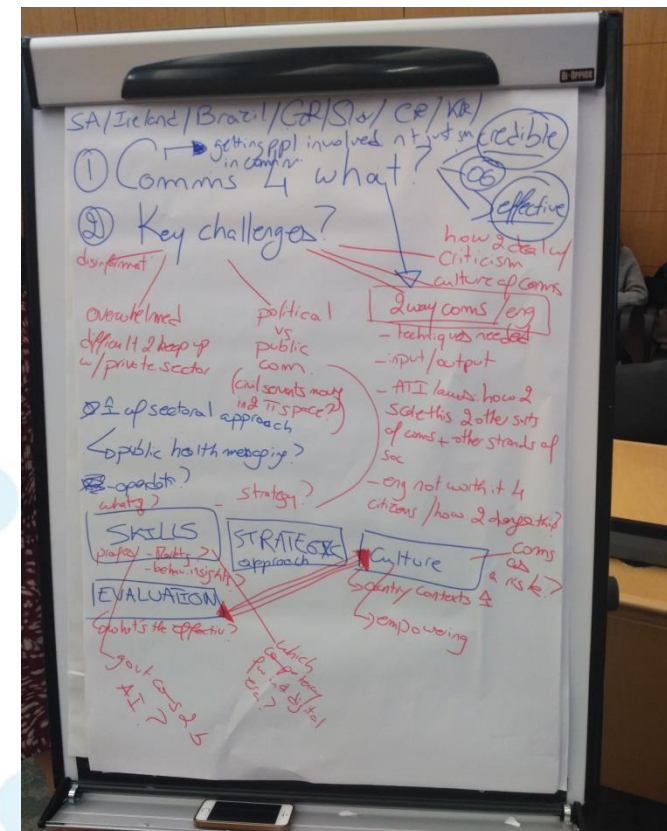 Bi-OFFICE
SA/Ireland/Brazil/GR/Slo/ CR/KR/
getting ppl involved n't just in
in commn.
① Comms 4 what?
credible
OG
effective
② Key challenges?
disinformat
how 2 deal w/
criticism
culture of coms
overwhelmed
difficult 2 keep up
w/private sector
political
vs
public
com.
(civil servants moving
in 2 π space?)
2way coms/eng
- techniques needed
- input/output
- ATI laws: how 2
scale this 2 other sets
of coms + other strands of
soc
- eng not worth it 4
citizens/how 2 change this?
of sectoral approach
public health messaging?
what?
- strategy?
SKILLS
- behav. insights?
STRATEGIC
approach
Culture
coms
as
a risk?
country contexts
empowering
EVALUATION
what's the effectiv?
gov't coms 2 b
AI?
which
competency
digital
era?